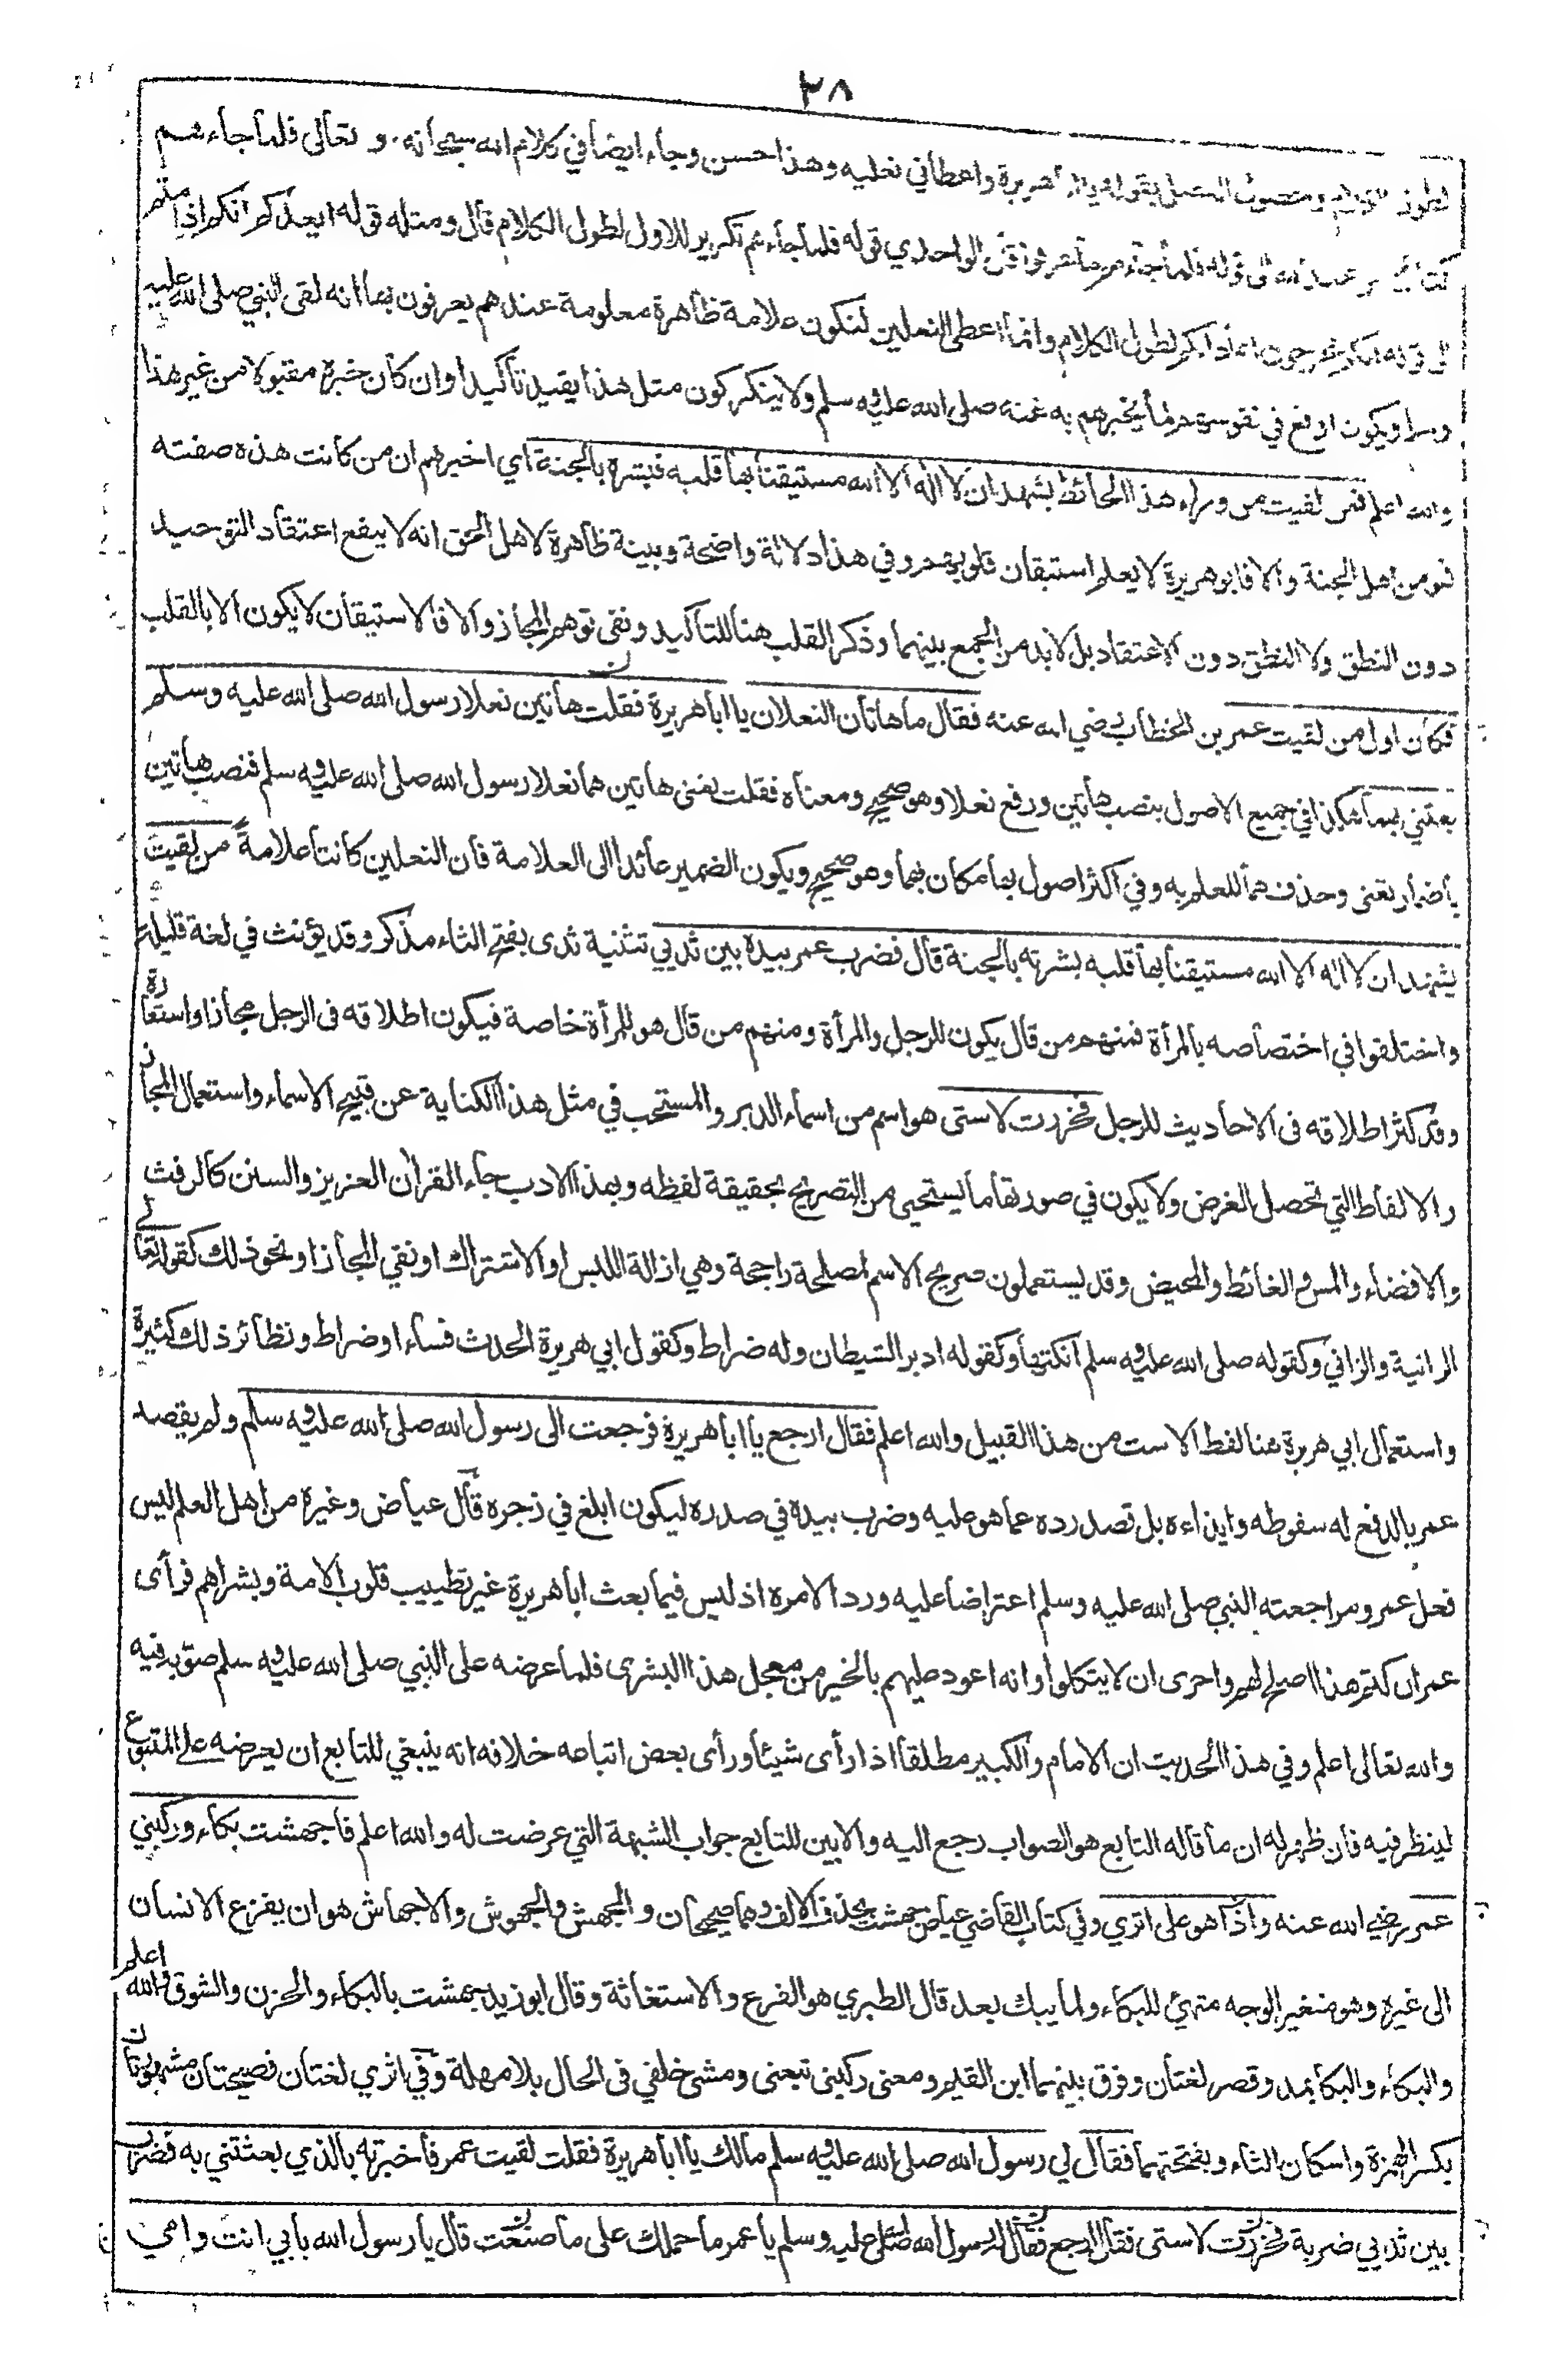 ٣٨
وحصول الفصل بقوله يا ابا هريرة واعطاني نعليه وهذا حسن وجاء ايضا في كلام الله سبحانه وتعالى فلما جاءهم
كتاب من عند الله الى قوله فلما جاءهم ما عرفوا قال الواحدي قوله فلما جاءهم تكرير للاول لطول الكلام قال ومثله قوله ايعدكم انكم اذا متم
الى قوله انكم مخرجون اعاد انكم لطول الكلام وانما اعطى النعلين لتكون علامة ظاهرة معلومة عندهم يعرفون بها انه لقى النبي صلى الله عليه
وسلم ويكون اوقع في نفوسهم ما يخبرهم به عنه صلى الله عليه وسلم ولا ينكر كون مثل هذا يفيد تأكيدا وان كان خبره مقبولا من غير هذا
والله اعلم فمن لقيت من وراء هذا الحائط يشهد ان لا اله الا الله مستيقنا بها قلبه فبشره بالجنة اي اخبرهم ان من كانت هذه صفته
فهو من اهل الجنة والا فابو هريرة لا يعلم استيقان قلوبهم وفي هذا دلالة واضحة وبينة ظاهرة لاهل الحق انه لا ينفع اعتقاد التوحيد
دون النطق ولا النطق دون الاعتقاد بل لابد من الجمع بينهما وذكر القلب هنا للتأكيد ونفى توهم المجاز والا فالاستيقان لا يكون الا بالقلب
فكان اول من لقيت عمر بن الخطاب رضي الله عنه فقال ما هاتان النعلان يا ابا هريرة فقلت هاتين نعلا رسول الله صلى الله عليه وسلم
بعثني بهما هكذا في جميع الاصول بنصب هاتين ورفع نعلا وهو صحيح ومعناه فقلت يعنى هاتين هما نعلا رسول الله صلى الله عليه وسلم فنصب هاتين
باضمار يعنى وحذف هما للعلم به وفي اكثر اصول بها مكان بهما وهو صحيح ويكون الضمير عائدا الى العلامة فان النعلين كانتا علامة من لقيت
يشهد ان لا اله الا الله مستيقنا بها قلبه بشرته بالجنة قال فضرب عمر بيده بين ثديي تثنية ثدى بفتح الثاء مذكر وقد يؤنث في لغة قليلة
واختلفوا في اختصاصه بالمرأة فمنهم من قال يكون للرجل والمرأة ومنهم من قال هو للمرأة خاصة فيكون اطلاقه في الرجل مجازا واستعارة
وقد كثر اطلاقه في الاحاديث للرجل فخررت لاستى هو اسم من اسماء الدبر والمستحب في مثل هذا الكناية عن قبيح الاسماء واستعمال المجاز
والالفاظ التي تحصل الغرض ولا يكون في صورتها ما يستحيى من التصريح بحقيقة لفظه وبهذا الادب جاء القرأن العزيز والسنن كالرفث
والافضاء والمس والغائط والمحيض وقد يستعملون صريح الاسم لمصلحة راجحة وهي ازالة اللبس او الاشتراك او نفي المجاز او نحو ذلك كقوله تعالى
الزانية والزاني وكقوله صلى الله عليه وسلم انكتها وكقوله ادبر الشيطان وله ضراط وكقول ابي هريرة الحدث فساء او ضراط ونظائر ذلك كثيرة
واستعمال ابي هريرة هنا لفظ الاست من هذا القبيل والله اعلم فقال ارجع يا ابا هريرة فرجعت الى رسول الله صلى الله عليه وسلم ولم يقصد
عمر بالدفع له سقوطه وايذاءه بل قصد رده عما هو عليه وضرب بيده في صدره ليكون ابلغ في زجره قال عياض وغيره من اهل العلم ليس
فعل عمر ومراجعته النبي صلى الله عليه وسلم اعتراضا عليه وردا لامره اذ ليس فيما بعث ابا هريرة غير تطييب قلوب الامة وبشراهم فرأى
عمر ان كتم هذا اصلح لهم واحرى ان لا يتكلوا وانه اعود عليهم بالخير من معجل هذا البشرى فلما عرضه على النبي صلى الله عليه وسلم صوبه فيه
والله تعالى اعلم وفي هذا الحديث ان الامام والكبير مطلقا اذا رأى شيئا ورأى بعض اتباعه خلافه انه ينبغي للتابع ان يعرضه على المتبوع
لينظر فيه فان ظهر له ان ما قاله التابع هو الصواب رجع اليه والا بين للتابع جواب الشبهة التي عرضت له والله اعلم فاجهشت بكاء وركبني
عمر رضي الله عنه واذا هو على اثري وفي كتاب القاضي عياض جهشت بحذف الالف وهما صحيحان والجهش والجهوش والاجهاش هو ان يفزع الانسان
الى غيره وهو متغير الوجه متهيئ للبكاء ولما يبك بعد قال الطبري هو الفزع والاستغاثة وقال ابو زيد جهشت بالبكاء والحزن والشوق والله اعلم
والبكاء والبكا بمد وقصر لغتان وفرق بينهما ابن القيم ومعنى ركبنى تبعنى ومشى خلفي في الحال بلا مهلة وفي اثري لغتان فصيحتان مشهورتان
بكسر الهمزة واسكان الثاء وبفتحتهما فقال لي رسول الله صلى الله عليه وسلم مالك يا ابا هريرة فقلت لقيت عمر فاخبرته بالذي بعثتني به فضرب
بين ثديي ضربة فخررت لاستى فقال ارجع فقال رسول الله صلى الله عليه وسلم يا عمر ما حملك على ما صنعت قال يا رسول الله بابي انت وامي